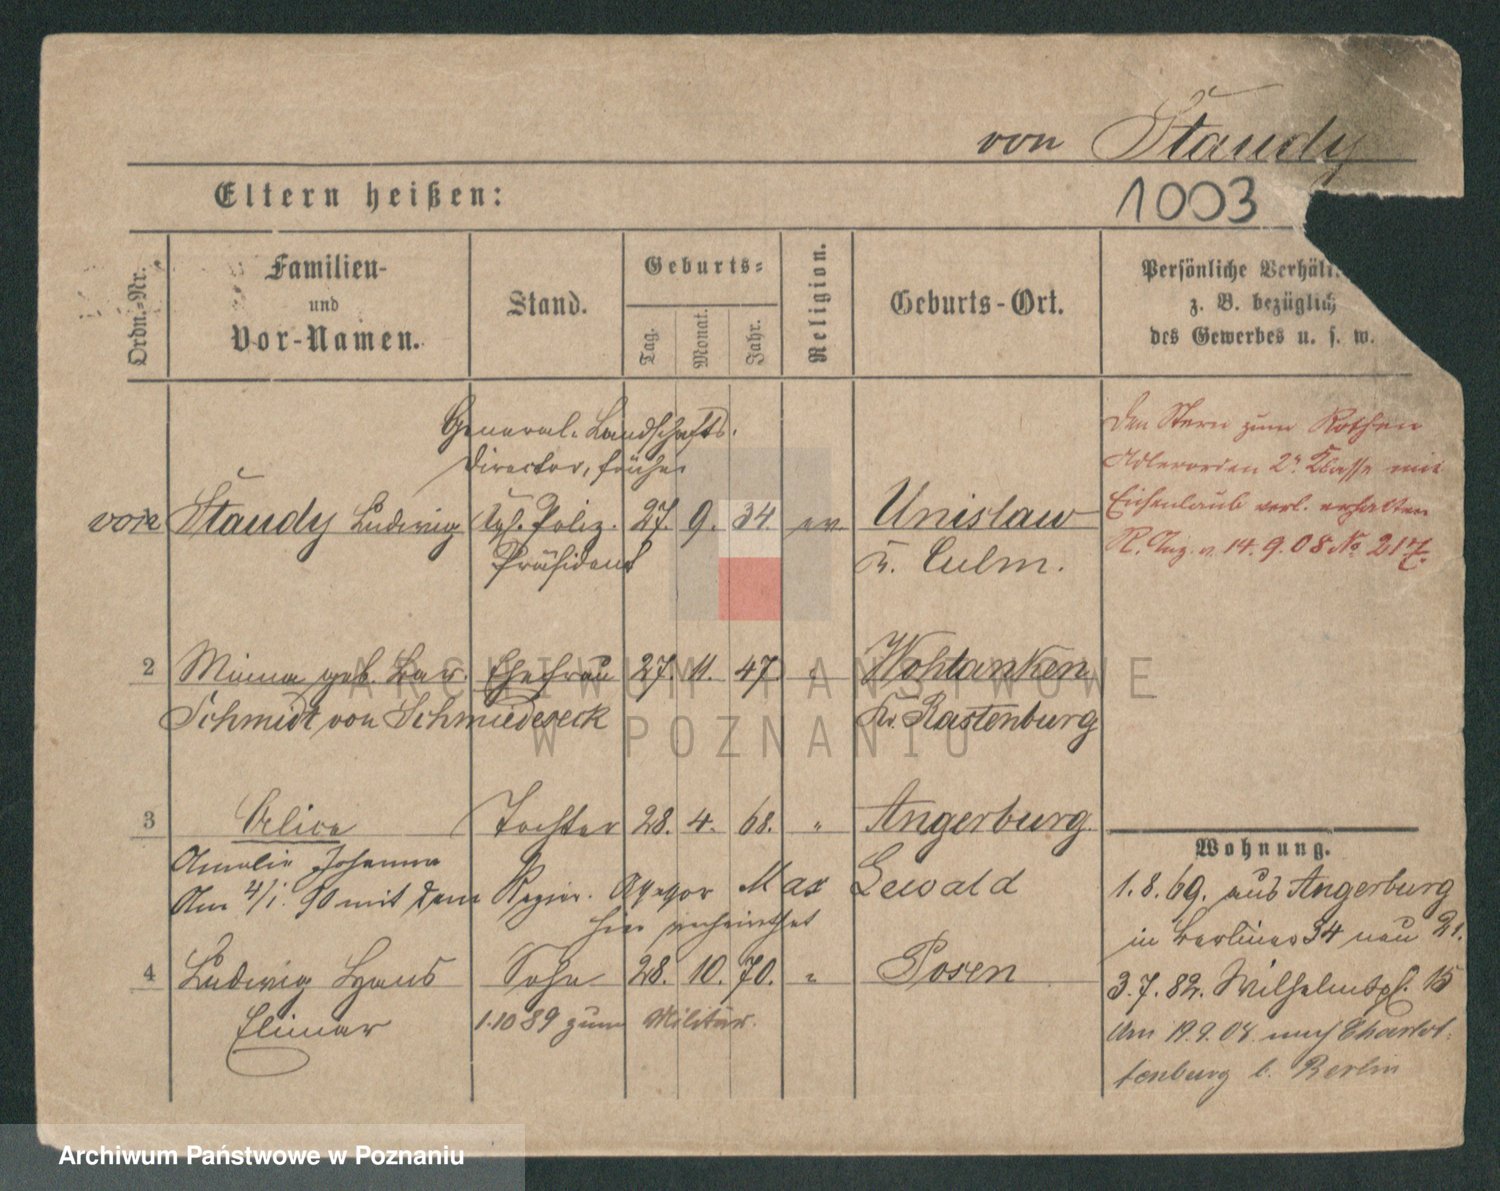 von Staudy
Eltern heißen:
1003
Ordn.-Nr.
Familien-
und
Vor-Namen.
Stand.
Geburts-
Tag.
Monat.
Jahr.
Religion.
Geburts-Ort.
Persönliche Verhält
z. B. bezüglich
des Gewerbes u. s. w.
General-Landschafts-
Director, früher
von Staudy Ludwig Kgl. Poliz. 27. 9. 34 ev. Unislaw
Präsident Kr. Culm.
Den Stern zum Rothen
Adlerorden 2r Klasse mit
Eichenlaub verl. erhalten
R. Anz. v. 14. 9. 08 No 217.
2 Minna geb. Ehefrau 27. 11. 47 " Wohlanken
Schmidt von Schmiedeseck Kr. Rastenburg
3 Alice Tochter 28. 4. 68. " Angerburg
Amalie Johanna
Am 4/1. 90 mit dem Regier. Assessor Max Lewald
hier verheirathet
4 Ludwig Hans Sohn 28. 10. 70. " Posen
Elimar 1.10 89 zum Militär.
Wohnung.
1. 8. 69. aus Angerburg
in Berliner 34 neu 21.
3. 7. 82. Wilhelmspl. 15
Am 19. 9. 08 nach Charlot-
tenburg b. Berlin
ARCHIWUM PAŃSTWOWE
W POZNANIU
Archiwum Państwowe w Poznaniu